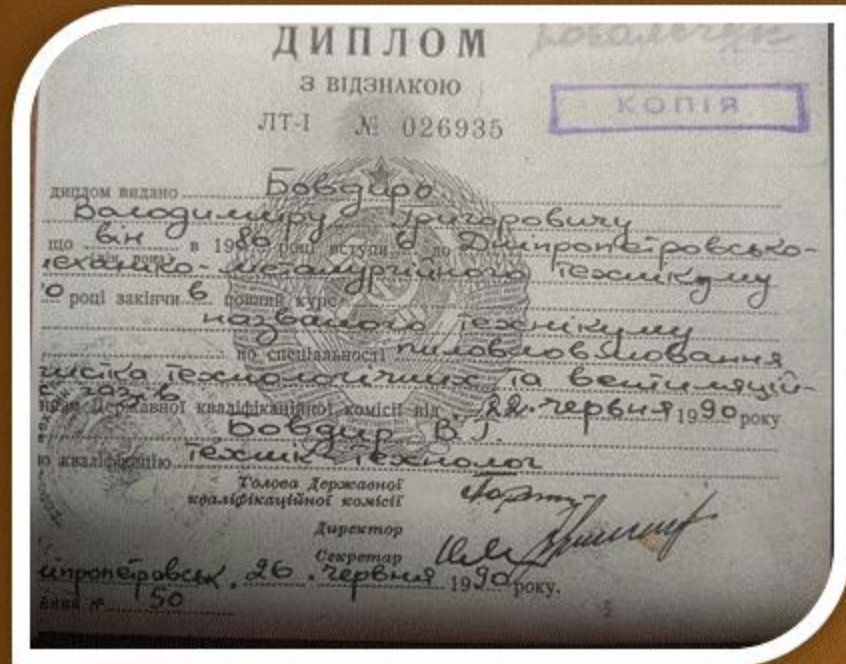 ДИПЛОМ
З ВІДЗНАКОЮ
КОПІЯ
ЛТ-І № 026935
диплом видано Бовдиру
Володимиру Григоровичу
що він в 1980 році вступив до Дніпропетровсько-
механіко-металургійного технікуму
0 році закінчив повний курс
названого технікуму
по спеціальності пиловловлювання
чистка технологічних та вентиляцій-
газів
Державної кваліфікаційної комісії від 22 червня 1990 року
Бовдир В.Г.
кваліфікацію технік-технолог
Голова Державної
кваліфікаційної комісії
Директор
Секретар
26 червня 1990 року.
№ 50